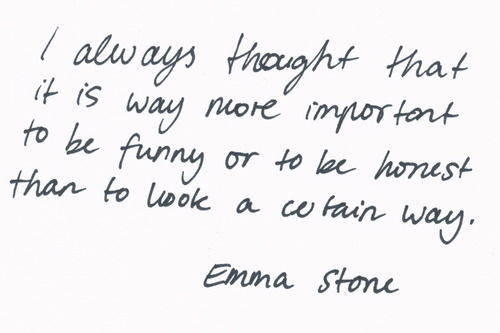 I always thought that
it is way more important
to be funny or to be honest
than to look a certain way.
Emma Stone